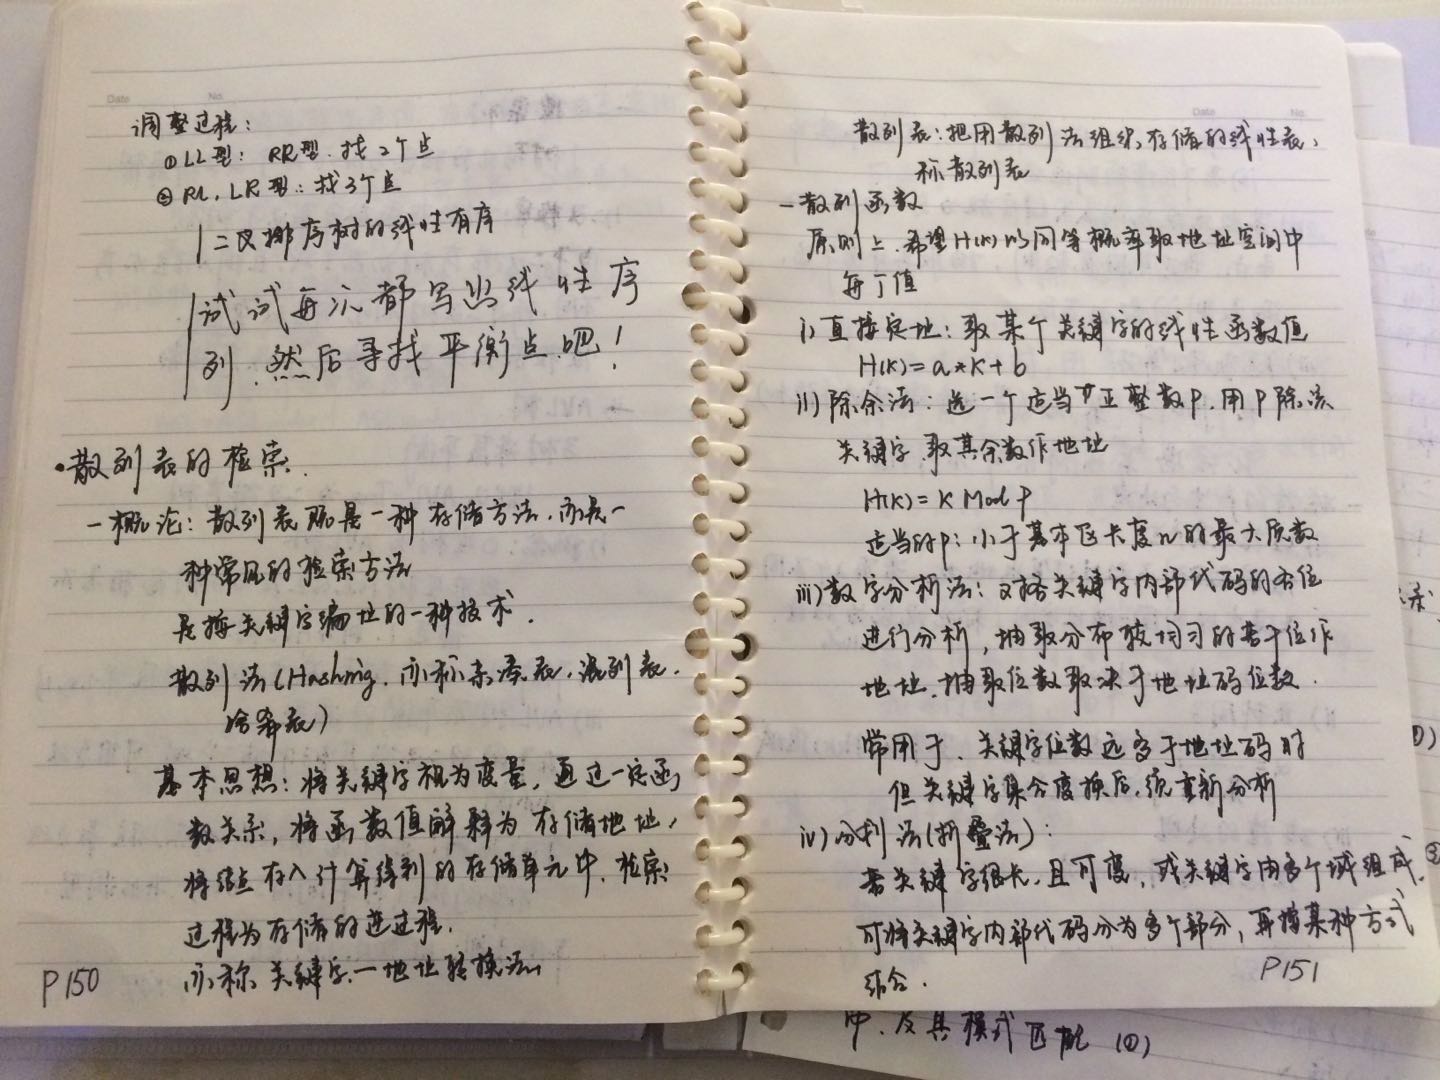 Date No.
调整过程:
①LL型: RR型. 找2个点
②RL, LR型: 找3个点
二叉排序树的线性有序
试试每次都写出线性序
列, 然后寻找平衡点吧!
·散列表的检索.
-概论: 散列表既是一种存储方法, 亦是一
种常见的检索方法
是按关键字编址的一种技术.
散列法(Hashing, 亦称杂凑表, 混列表,
哈希表)
基本思想: 将关键字视为变量, 通过一定函
数关系, 将函数值解释为存储地址,
将结点存入计算得到的存储单元中, 检索
过程为存储的逆过程.
亦称 关键字—地址转换法
P150
Date No.
散列表: 把用散列法组织, 存储的线性表,
称散列表
-散列函数
原则上, 希望H(k)以同等概率取地址空间中
每个值
i) 直接定址: 取某个关键字的线性函数值
H(K)=a*K+b
ii) 除余法: 选一个适当的正整数P, 用P除以
关键字, 取其余数作地址
H(K)= K Mod P
适当的P: 小于基本区长度n的最大质数
iii) 数字分析法: 对各关键字内部代码的各位
进行分析, 抽取分布较均匀的若干位作
地址, 抽取位数取决于地址码位数.
常用于, 关键字位数远多于地址码时
但关键字集合变换后, 须重新分析
iv) 分割法(折叠法):
若关键字很长, 且可变, 或关键字由多个域组成,
可将关键字内部代码分为多个部分, 再按某种方式
结合.
P151
中, 及其模式匹配 (①)